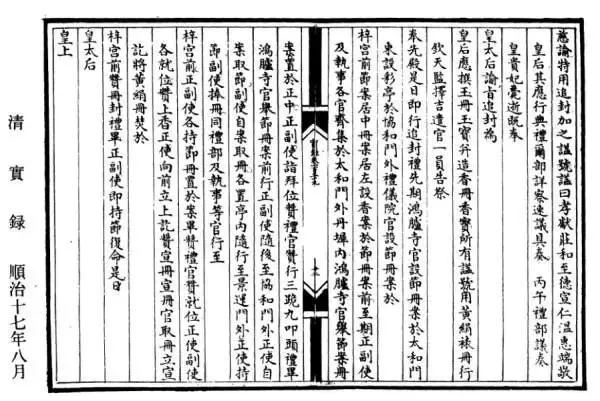 慈諭特用追封加之諡號諡曰孝獻莊和至德宣仁温惠端敬
皇后其應行典禮爾部詳察速議具奏　丙午禮部議奏
皇貴妃薨逝既奉
皇太后諭旨追封為
皇后應撰玉冊玉寶并造香冊香寶所有諡號用黃絹裱冊行
欽天監擇吉遣官一員告祭
奉先殿是日即行追封禮先期鴻臚寺官設節冊案於太和門
東設彩亭於協和門外禮儀院官設節冊案於
梓宮前節案居中冊案居左設香案於節冊案前至期正副使
及執事各官齊集於太和門外丹墀內鴻臚寺官舉節案冊
案置於正中正副使詣拜位贊禮官贊行三跪九叩頭禮畢
鴻臚寺官舉節冊案前行正副使隨後至協和門外正使自
案取節副使自案取冊各置亭內隨行至景運門外正使持
節副使捧冊同禮部及執事等官行至
梓宮前正副使各持節冊置於案畢贊禮官贊就位正副使
各就位贊上香正使向前立上訖贊宣冊宣冊官取冊立宣
訖將黃絹冊焚於
梓宮前贊冊封禮畢正副使即持節復命是日
皇太后
皇上
清實錄　順治十七年八月